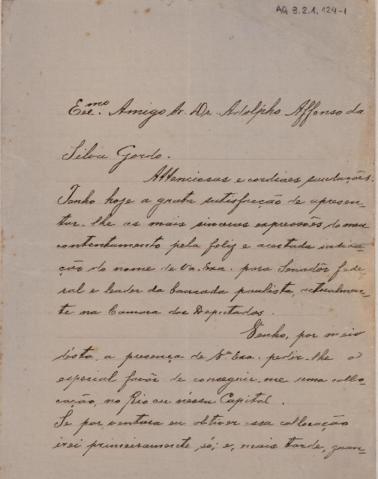 AG 3.2.1.124-1
Exc.mo Amigo Sr. Dr. Adolpho Affonso da
Silva Gordo.
Attenciosas e cordiaes saudações.
Tenho hoje a grata satisfacção de apresen-
tar-lhe as mais sinceras expressões do meu
contentamento pela feliz e acertada indica-
ção do nome de V.a Exa. para Senador Fede-
ral e leader da bancada paulista, actualmen-
te na Camara dos Deputados.
Venho, por meio
desta, a presença de V.a Exa. pedir-lhe o
especial favôr de conseguir-me uma collo-
cação, no Rio ou nessa Capital.
Se por ventura eu obtiver essa collocação
irei primeiramente só; e, mais tarde, quan-